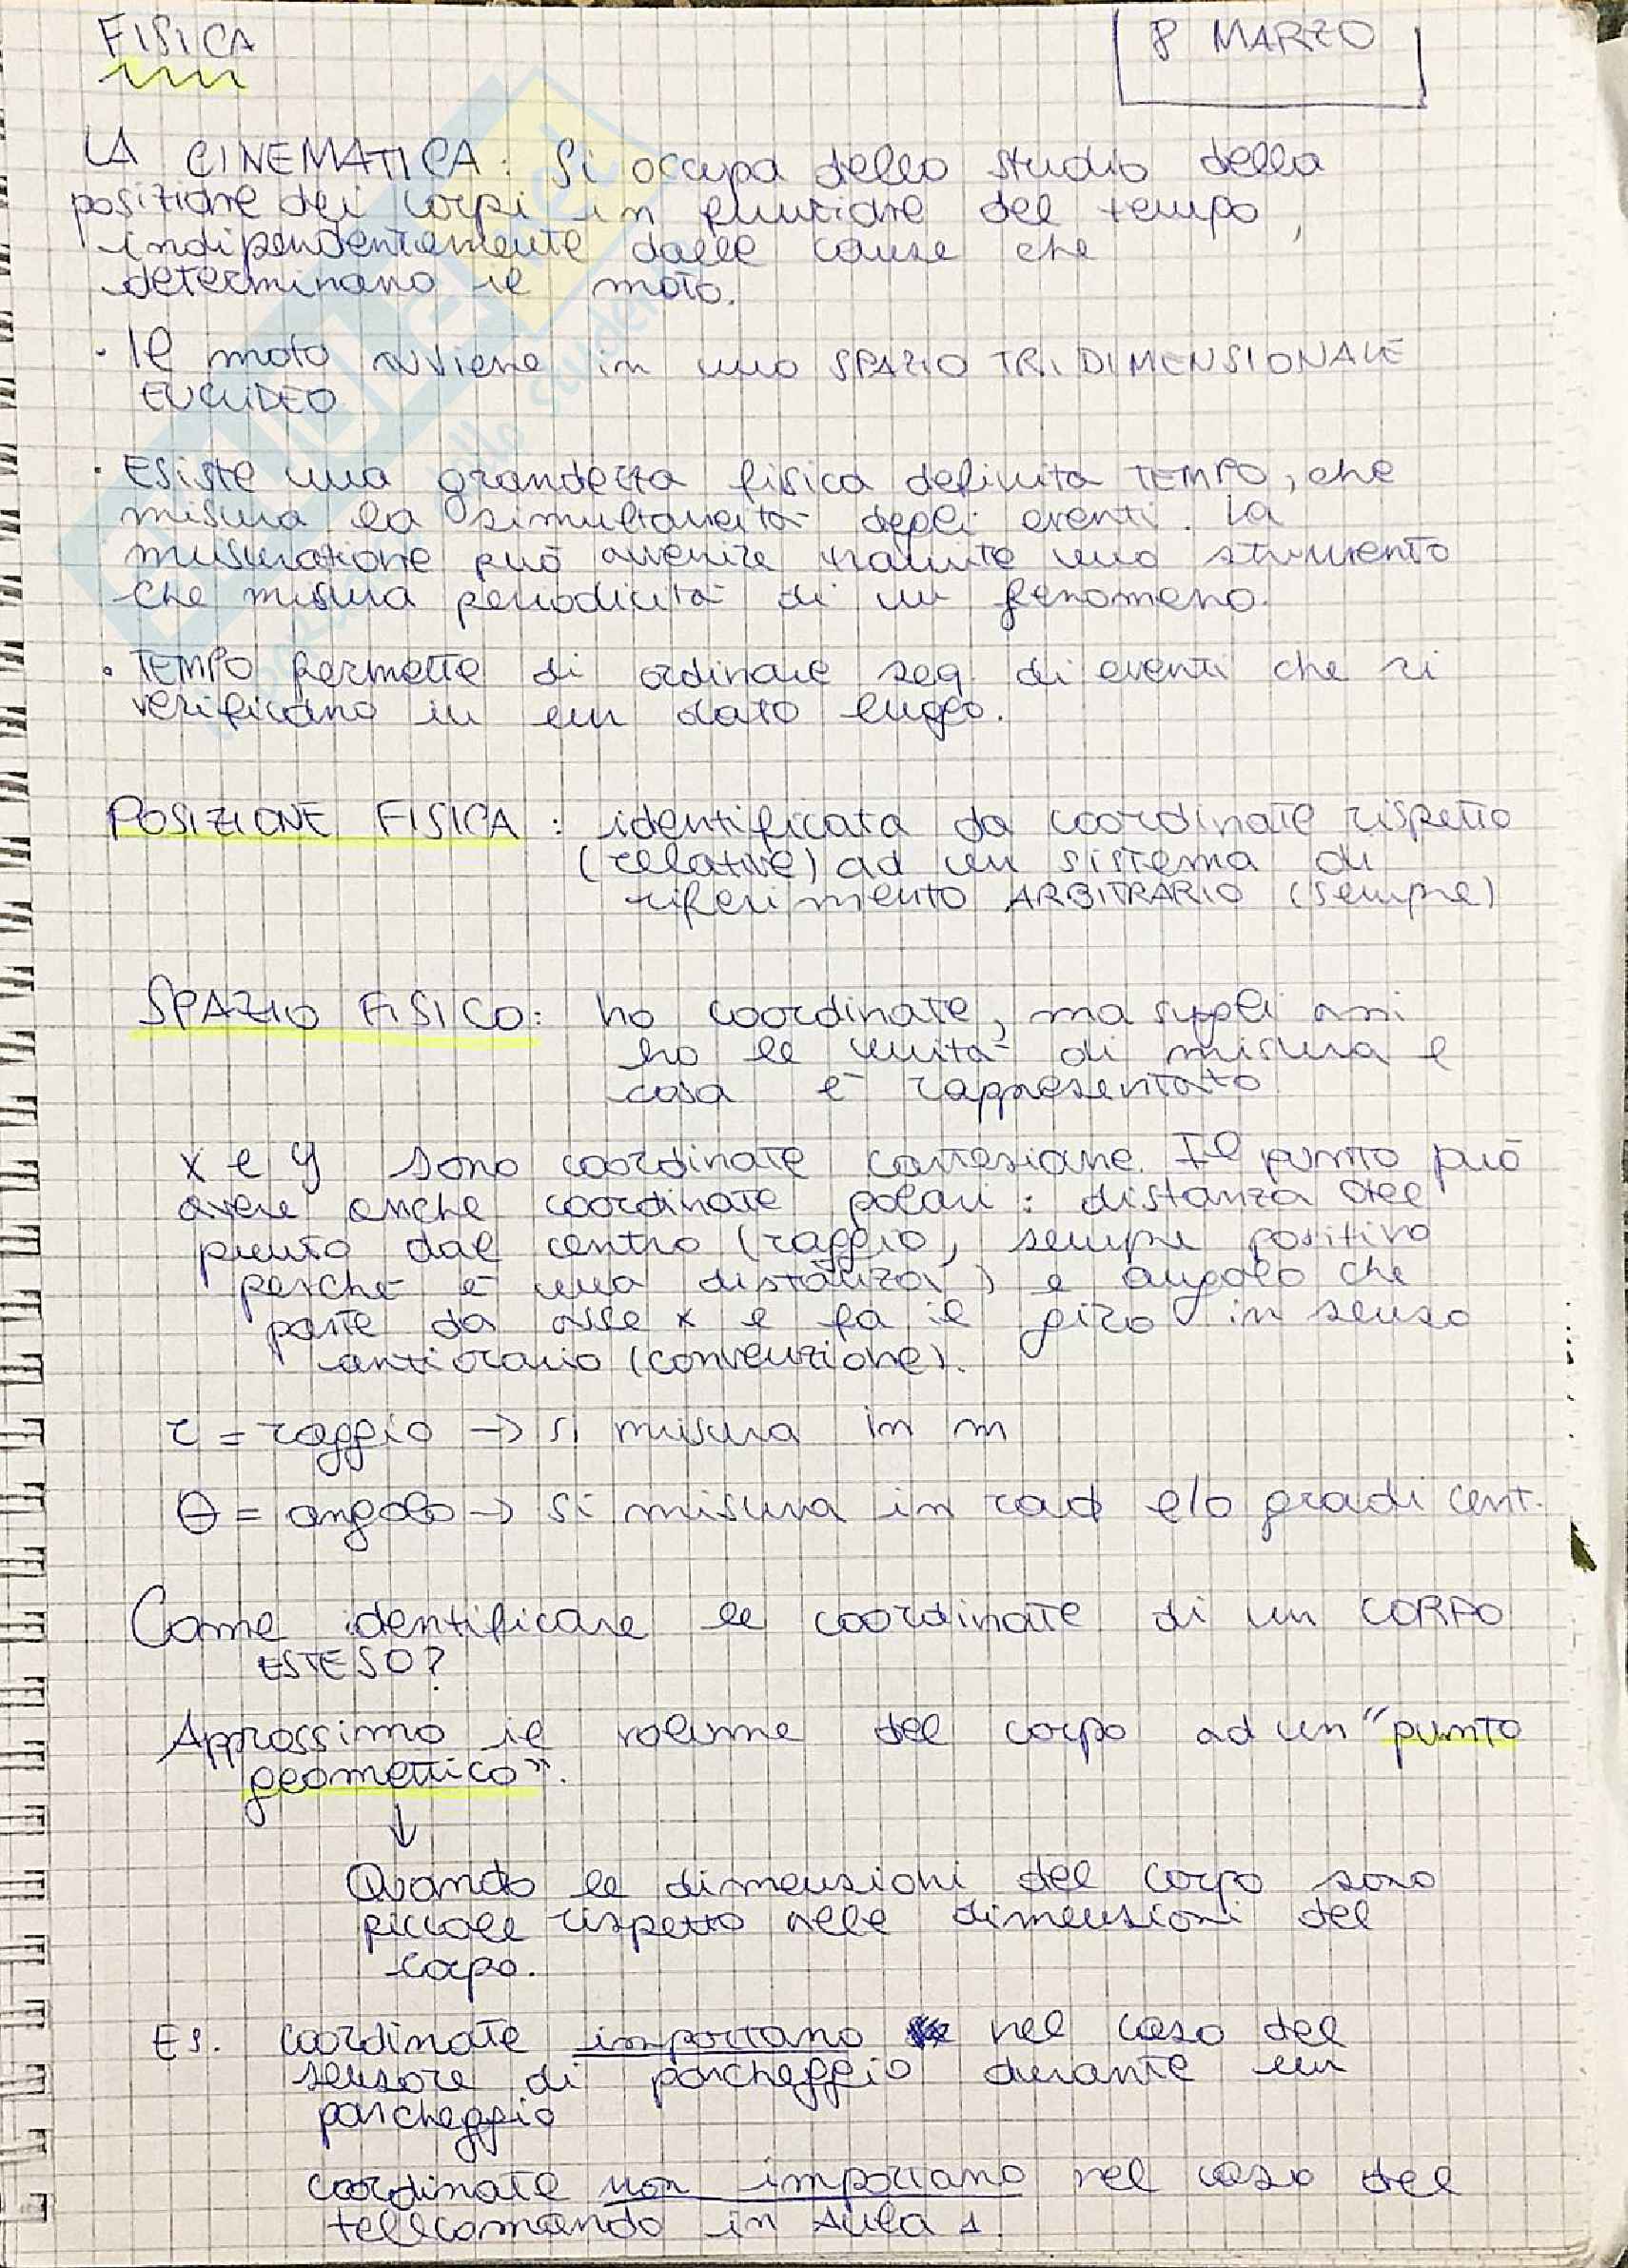 FISICA
8 MARZO
LA CINEMATICA: Si occupa dello studio della
posizione dei corpi in funzione del tempo,
indipendentemente dalle cause che
determinano il moto.
· Il moto avviene in uno SPAZIO TRIDIMENSIONALE
EUCLIDEO
· Esiste una grandezza fisica definita TEMPO, che
misura la simultaneità degli eventi. La
misurazione può avvenire tramite uno strumento
che misura periodicità di un fenomeno.
· TEMPO permette di ordinare seq. di eventi che si
verificano in un dato luogo.
POSIZIONE FISICA: identificata da coordinate rispetto
(relative) ad un sistema di
riferimento ARBITRARIO (sempre)
SPAZIO FISICO: ho coordinate, ma sugli assi
ho le unità di misura e
cosa è rappresentato
x e y sono coordinate cartesiane. Il punto può
avere anche coordinate polari: distanza del
punto dal centro (raggio, sempre positivo
perché è una distanza) e angolo che
parte da asse x e fa il giro in senso
antiorario (convenzione).
r = raggio → si misura in m
θ = angolo → si misura in rad e/o gradi cent.
Come identificare le coordinate di un CORPO
ESTESO?
Approssimo il volume del corpo ad un "punto
geometrico".
↓
Quando le dimensioni del corpo sono
piccole rispetto alle dimensioni del
corpo.
Es. coordinate importano nel caso del
sensore di parcheggio durante un
parcheggio
coordinate non importano nel caso del
telecomando in Aula 1.